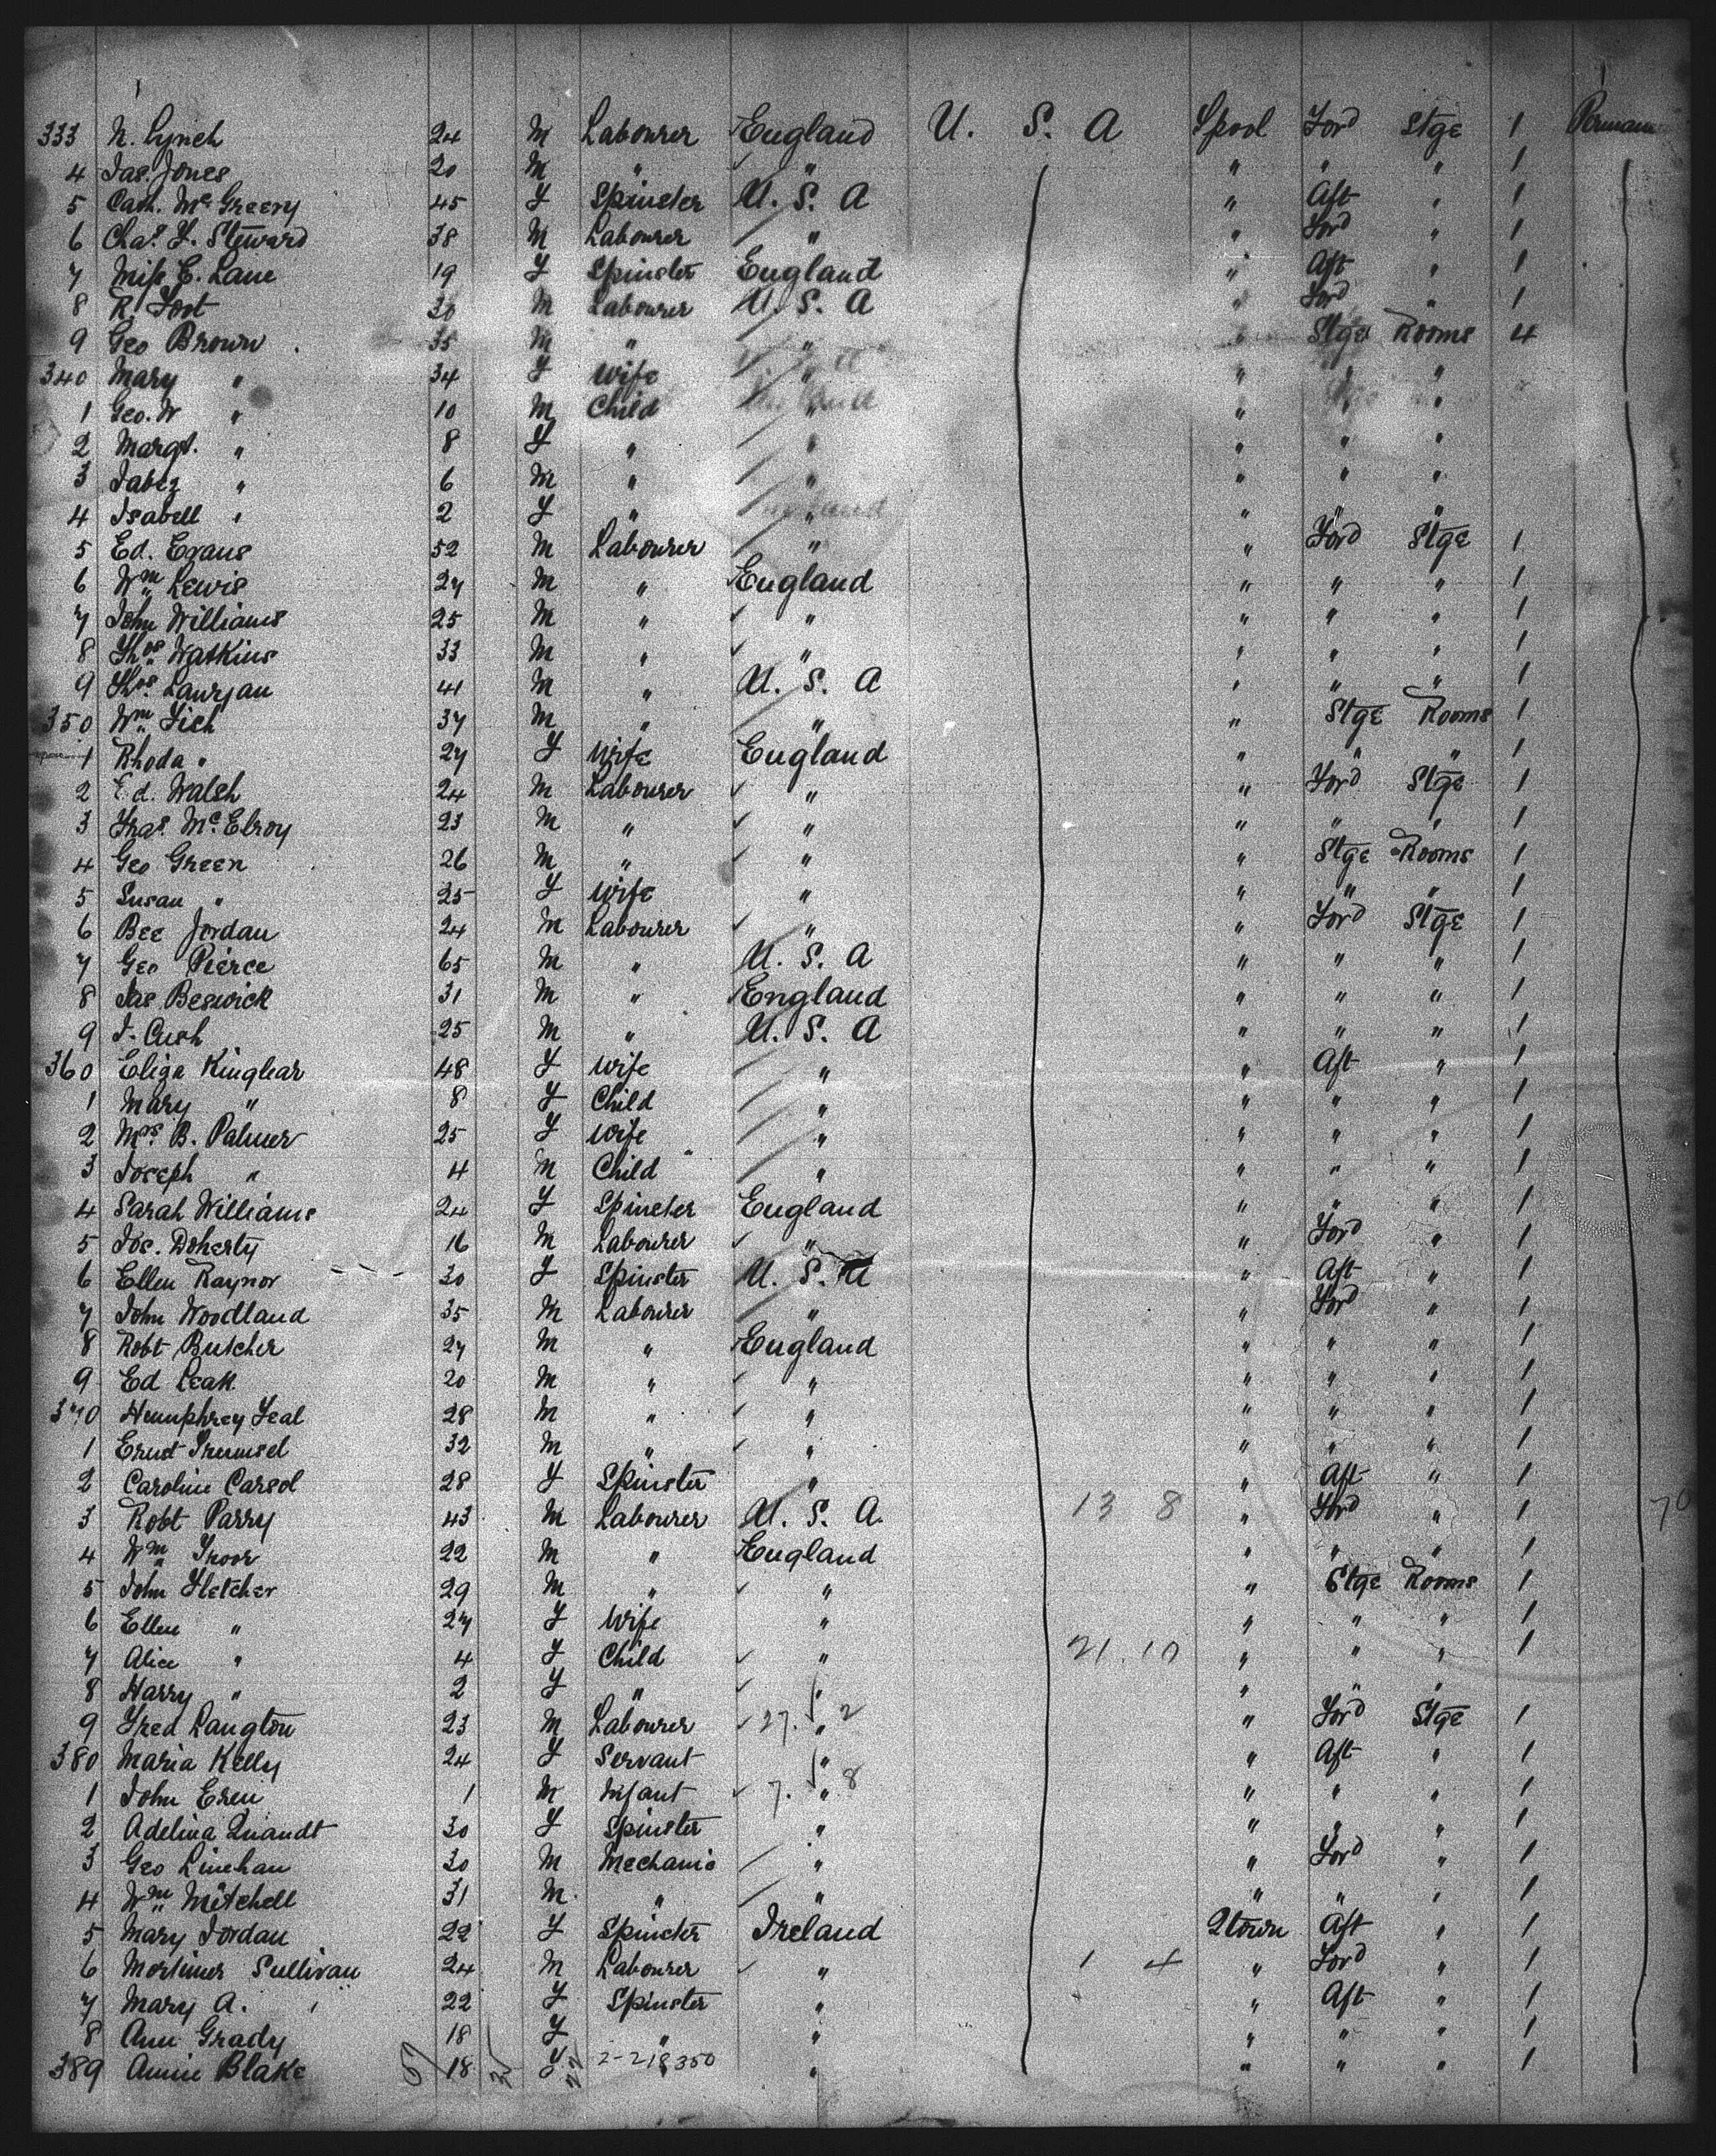 333 N. Lynch 24 M Labourer England U. S. A Lpool Ford Stge 1 Perman
4 Jas. Jones 20 M " " " " " 1
5 Cath. McGreevy 45 F Spinster U. S. A " Aft " 1
6 Chas. F. Steward 38 M Labourer " " Ford " 1
7 Miss E. Lane 19 F Spinster England " Aft " 1
8 R. Foot 30 M Labourer U. S. A " Ford " 1
9 Geo Brown 35 M " " " Stge Rooms 4
340 Mary " 34 F Wife " " " "
1 Geo. W " 10 M Child " " " "
2 Margt. " 8 F " " " " "
3 Jabez " 6 M " " " " "
4 Isabell " 2 F " " " " "
5 Ed. Evans 52 M Labourer " " Ford Stge 1
6 Wm Lewis 27 M " England " " " 1
7 John Williams 25 M " " " " " 1
8 Thos Watkins 33 M " " " " " 1
9 Thos. 41 M " U. S. A " " " 1
350 Wm Fish 37 M " " " Stge Rooms 1
1 Rhoda " 27 F Wife England " " " 1
2 Ed. Walsh 24 M Labourer " " Ford Stge 1
3 Thos. McElroy 23 M " " " " " 1
4 Geo Green 26 M " " " Stge Rooms 1
5 Susan " 25 F Wife " " " " 1
6 Bee Jordan 24 M Labourer " " Ford Stge 1
7 Geo Pierce 65 M " U. S. A " " " 1
8 Jas Beswick 31 M " England " " " 1
9 J. Cush 25 M " U. S. A " " " 1
360 Eliza Kinglear 48 F Wife " " Aft " 1
1 Mary " 8 F Child " " " " 1
2 Mrs. B. Palmer 25 F Wife " " " " 1
3 Joseph " 4 M Child " " " " 1
4 Sarah Williams 24 F Spinster England " " " 1
5 Jos. Doherty 16 M Labourer " " Ford " 1
6 Ellen Raynor 30 F Spinster U. S. A " Aft " 1
7 John Woodland 35 M Labourer " " Ford " 1
8 Robt Butcher 27 M " England " " " 1
9 Ed Leak 20 M " " " " " 1
370 Humphrey Leal 28 M " " " " " 1
1 Ernst 32 M " " " " " 1
2 Caroline Carsol 28 F Spinster " " Aft " 1
3 Robt Parry 43 M Labourer U. S. A. 13 8 " Ford " 1 70
4 Wm 22 M " England " " " 1
5 John Fletcher 29 M " " " Stge Rooms 1
6 Ellen " 27 F Wife " " " " 1
7 Alice " 4 F Child " 21.10 " " " 1
8 Harry " 2 F " " " " "
9 Fred Langton 23 M Labourer 27. " 2 " Ford Stge 1
380 Maria Kelly 24 F Servant " " Aft " 1
1 John Eren 1 M Infant 7. " 8 " " " 1
2 Adelina Quandt 30 F Spinster " " " " 1
3 Geo Linehan 30 M Mechanic " " Ford " 1
4 Wm Mitchell 31 M. " " " " " 1
5 Mary Jordan 22 F Spinster Ireland Qtown Aft " 1
6 Mortimer Sullivan 24 M Labourer " 1 4 " Ford " 1
7 Mary A. " 22 F Spinster " " Aft " 1
8 Ann Grady 18 F " " " " " 1
389 Annie Blake 18 F 2-218350 " " " " 1